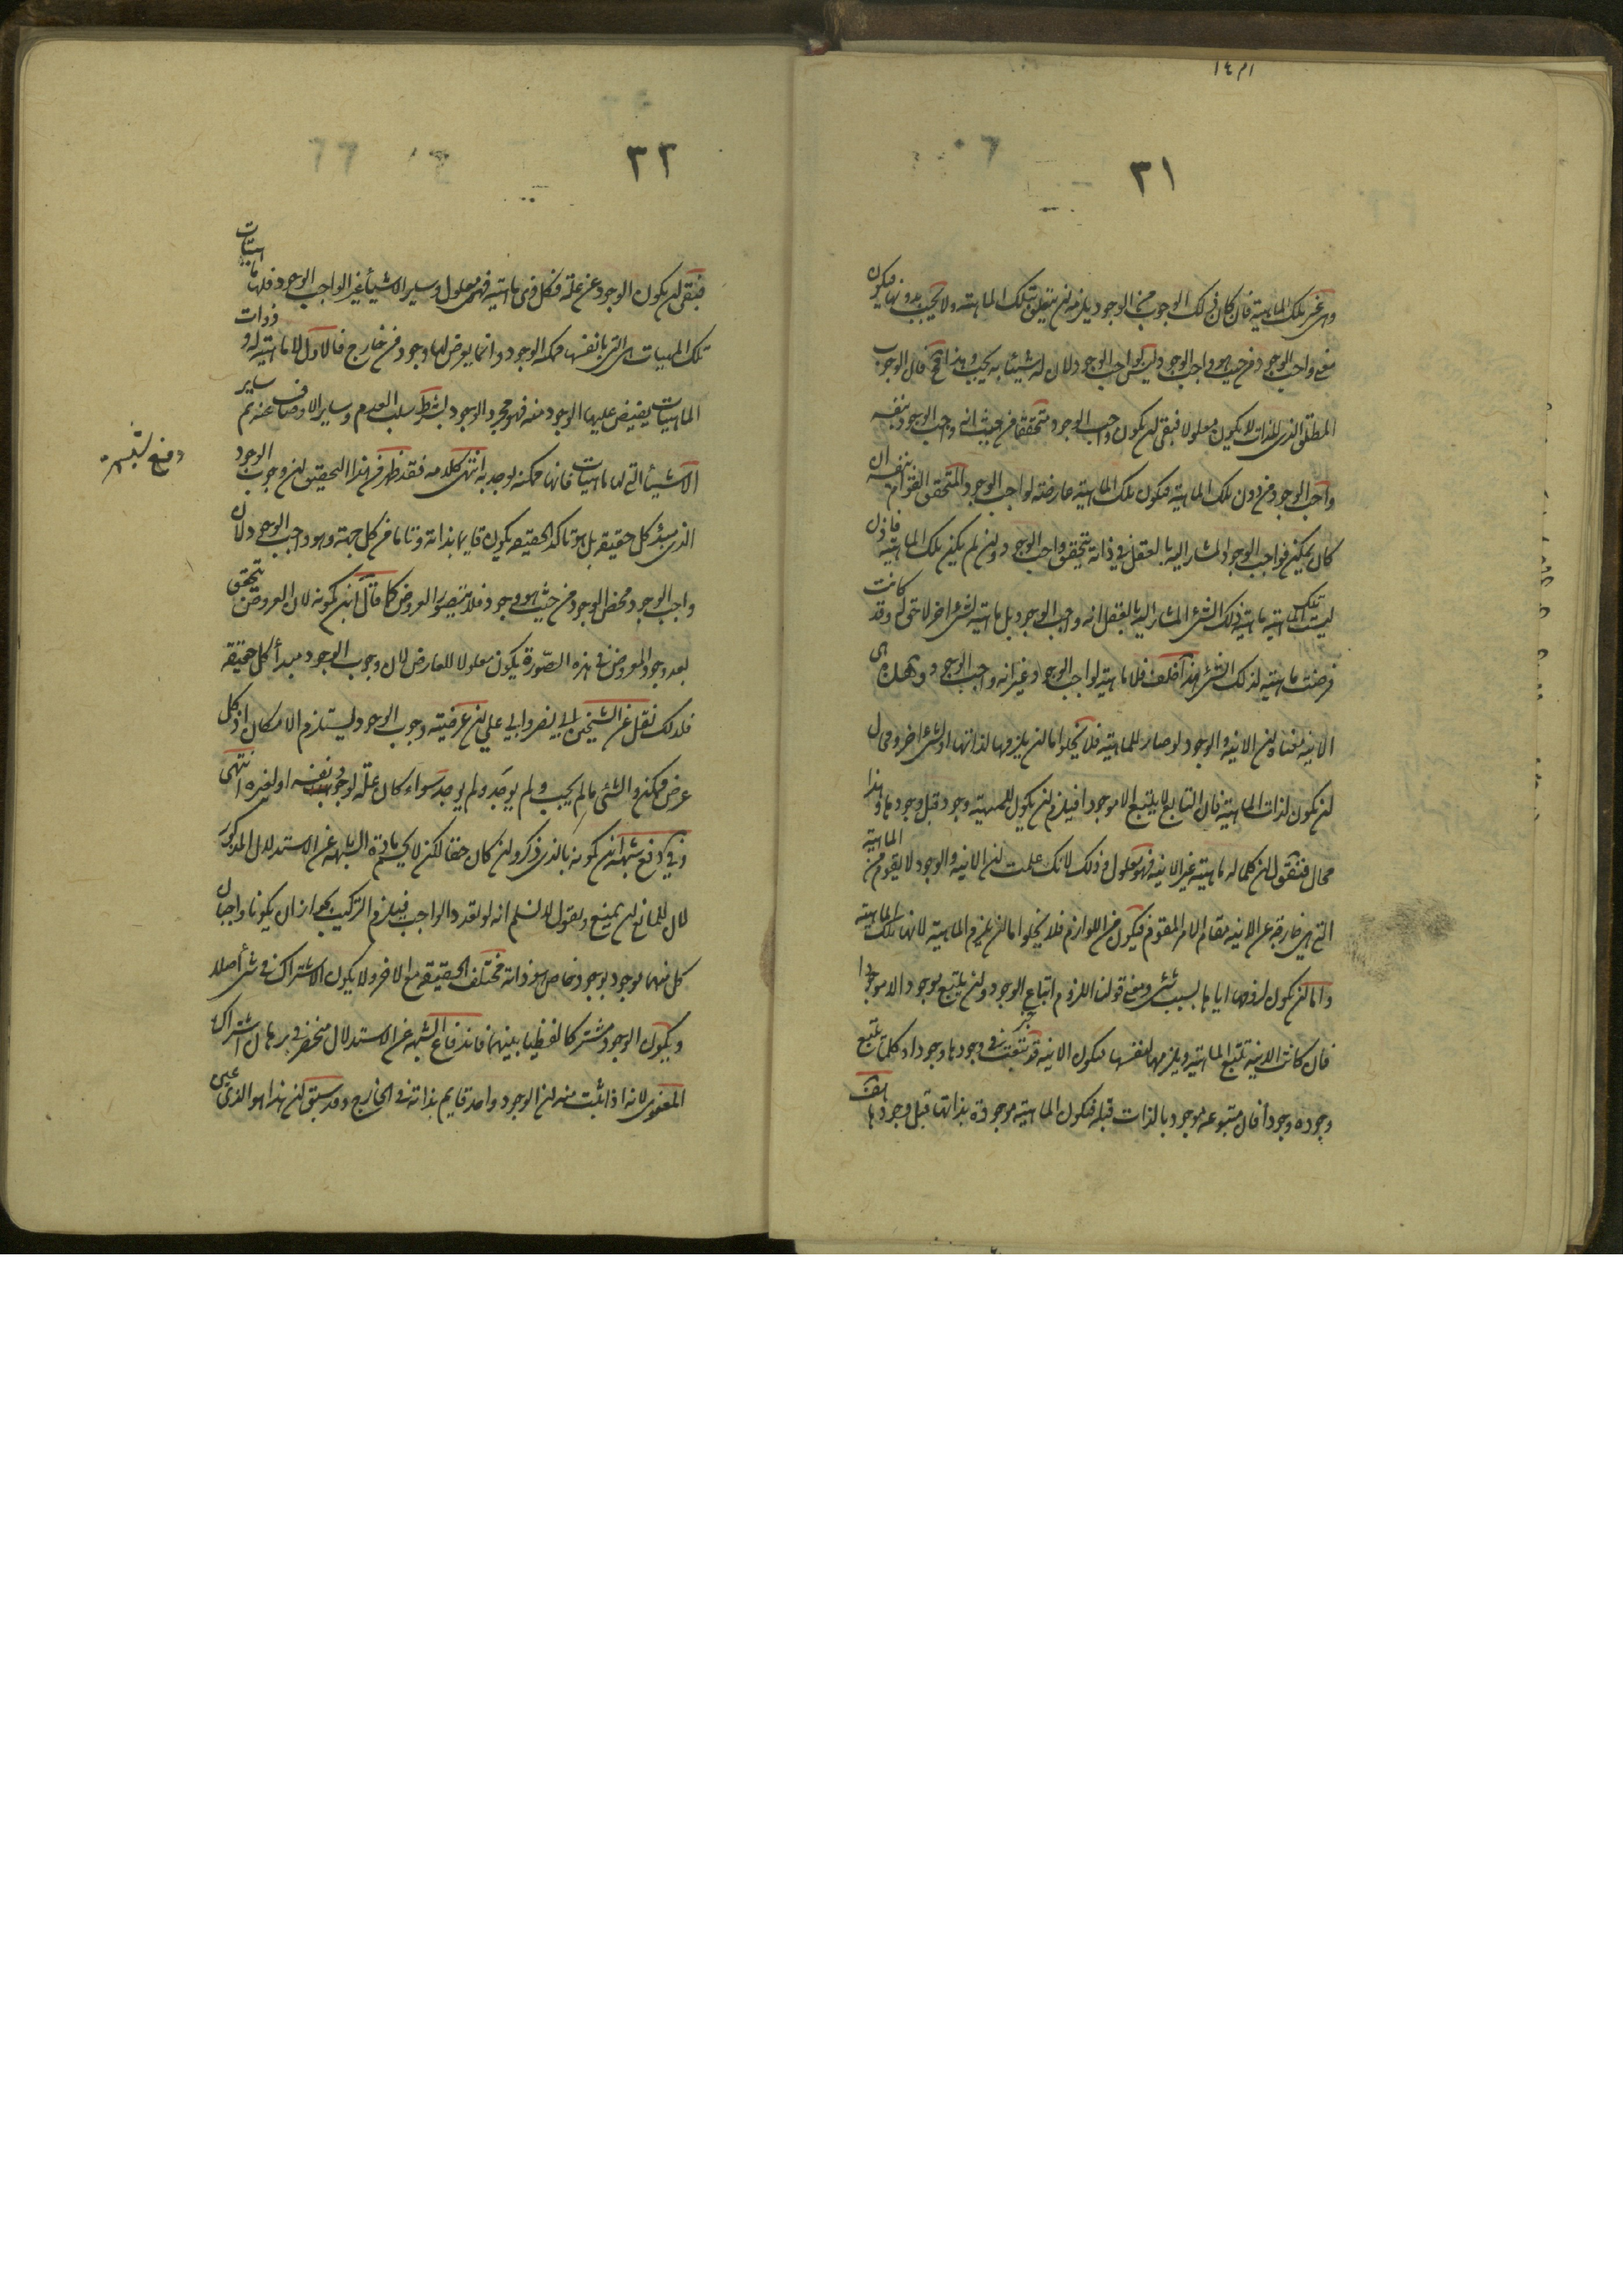 ٣١
وهى غير تلك الماهية فان كان ذلك الوجوب من الوجود يلزمه ان يتعلق بتلك الماهية ولا يجب بدونها فيكون
معنى واجب الوجود من حيث هو واجب الوجود ليس بواجب الوجود لان له شيئا به يجب وهذا محال فان الوجوب
المطلق الذى بالذات لا يكون معلولا فبقى ان يكون واجب الوجود متحققا من حيث انه واجب الوجود بنفسه
واجب الوجود من دون تلك الماهية فيكون تلك الماهية عارضة لواجب الوجود المتحقق القوام بنفسه ان
كان يمكن فواجب الوجود المشار اليه بالعقل فى ذاته يتحقق واجب الوجود وان لم يكن تلك الماهية فاذن
ليست تلك الماهية ماهية ذلك الشئ المشار اليه بالعقل انه واجب الوجود بل ماهية لشئ اخر لاحق له وقد كانت
فرضت ماهية لذلك الشئ هذا خلف فلا ماهية لواجب الوجود غير انه واجب الوجود وهذه هى
الانية فان الانية والوجود لو صار للماهية فلا يخلو اما ان يلزمها لذاتها او لشئ اخر ومحال
ان يكون لذات الماهية فان التابع لا يتبع الا موجودا فيلزم ان يكون للماهية وجود قبل وجودها وهذا
محال فنقول ان كلما له ماهية غير الانية فهو معلول وذلك لانك علمت ان الانية والوجود لا يقوم من الماهية
التى هى خارجة عن الانية مقام الامر المقوم فيكون من اللوازم فلا يخلو اما ان يلزم الماهية لانها تلك الماهية
واما ان يكون لزومها اياها بسبب شئ ومعنى قولنا اللزوم اتباع الوجود ولن يتبع موجود الا موجودا
فان كانت الانية تتبع الماهية ويلزمها لنفسها فيكون الانية قد تبعت فى وجودها وجودا وكلما يتبع
وجوده وجودا فان متبوعه موجود بالذات قبله فيكون الماهية موجودة بذاتها قبل وجودها هف
٣٢
فبقى ان يكون الوجود عن علة فكل ذى ماهية فهو معلول وساير الاشياء غير الواجب الوجود فلها ماهيات
تلك الماهيات هى التى بانفسها ممكنة الوجود وانما يعرض لها وجود من خارج فالاول لا ماهية له وذوات
الماهيات يفيض عليها الوجود منه فهو مجرد الوجود بشرط سلب العدم وساير الاوصاف عنه ثم ساير
الاشياء التى لها ماهيات فانها ممكنة توجد به انتهى كلامه فقد ظهر من هذا التحقيق ان وجوب الوجود
الذى مبدء كل حقيقة بل هو تاكد الحقيقة يكون قايما بذاته وتاما من كل جهة وهو واجب الوجود لان
واجب الوجود محض الوجود من حيث هو وجود فلا يتصور العروض كما قال ابن كمونه لان العروض يتحقق
بعد وجود المعروض فى هذه الصورة يكون معلولا للعارض لان وجوب الوجود مبدأ كل حقيقة
فلذلك نقل عن الشيخين ابى نصر وابى على ان عرضية وجوب الوجود ليستلزم الامكان اذ كل
عرض ممكن والشئ ما لم يجب لم يوجد ولم يوجد سواء كان علة لوجود نفسه او لغيره انتهى
وفى دفع شبهة ابن كمونه بالذى ذكر وان كان حقا لكن لا يحسم مادة الشبهة عن الاستدلال المذكور
لان للمانع ان يمنع ويقول لا نسلم انه لو تعدد الواجب فيلزم التركيب بجواز ان يكونا واجبان
كل منهما موجود بوجود خاص هو ذاته مختلف الحقيقة مع الاخر ولا يكون الاشتراك فى شئ اصلا
ويكون الوجود مشتركا لفظيا بينهما فاندفاع الشبهة عن الاستدلال منحصر فى برهان اشتراك
المعنوى لانه اذا ثبت منه ان الوجود واحد قايم بذاته فى الخارج وقد سبق ان هذا هو الذى عين
دفع شبهة